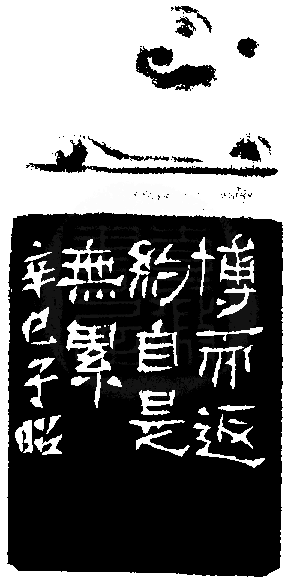 博而返
約自是
無累
辛巳子昭